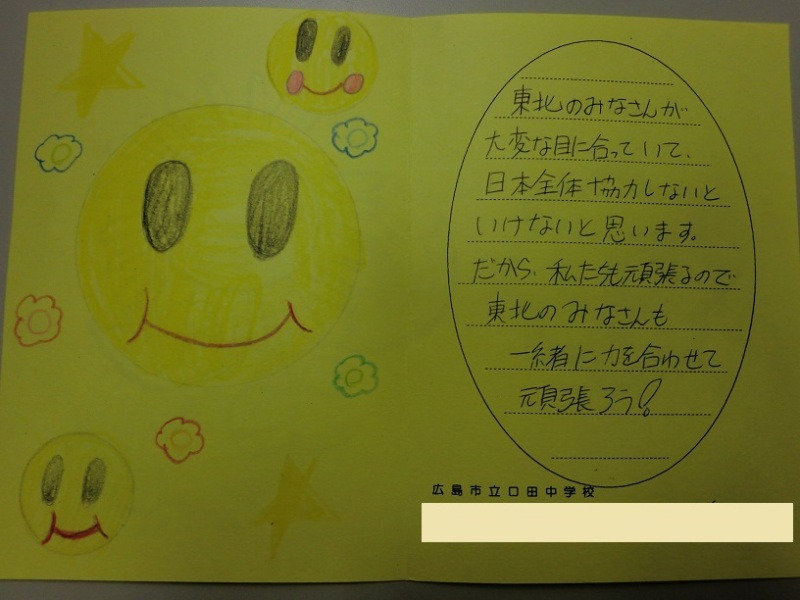 東北のみなさんが
大変な目に合っていて、
日本全体協力しないと
いけないと思います。
だから、私たち頑張るので
東北のみなさんも
一緒に力を合わせて
頑張ろう!
広島市立口田中学校